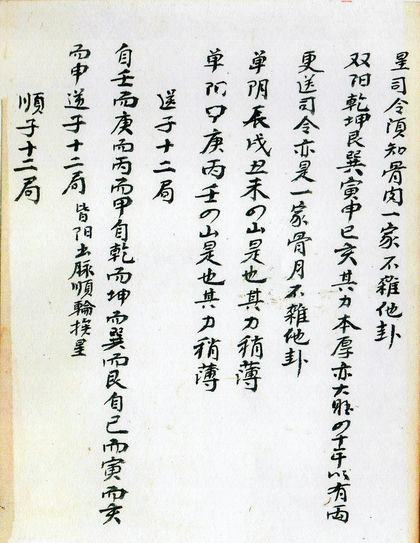 星司令須知骨肉一家不雜他卦
双阳乾坤艮巽寅申巳亥其力本厚亦大勝の十年以有両
更送司令亦是一家骨月不雜他卦
单阴辰戌丑未の山是也其力稍薄
单阳甲庚丙壬の山是也其力稍薄
送子十二局
自壬而庚而丙而甲自乾而坤而巽而艮自巳而寅而亥
而申送子十二局 皆阳出脉順輪挨星
順子十二局